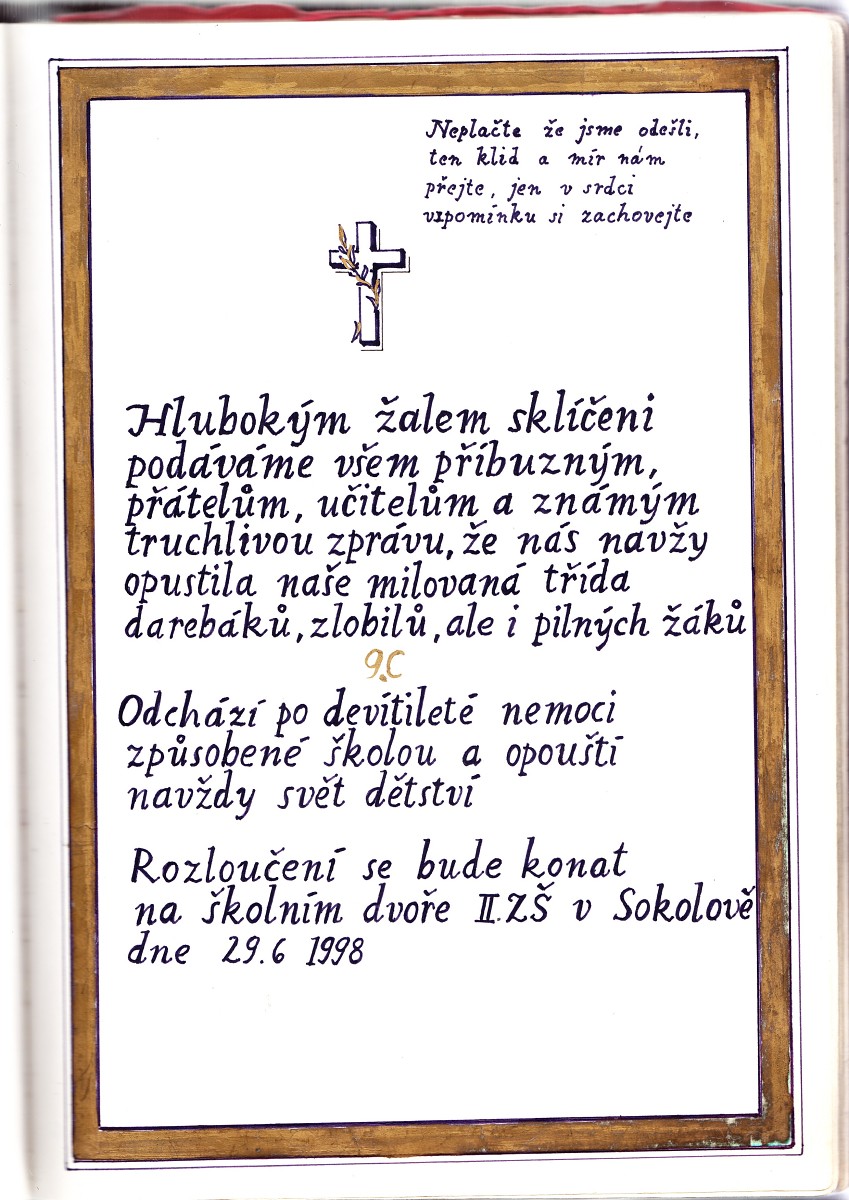 Neplačte že jsme odešli,
ten klid a mír nám
přejte, jen v srdci
vzpomínku si zachovejte
Hlubokým žalem sklíčeni
podáváme všem příbuzným,
přátelům, učitelům a známým
truchlivou zprávu, že nás navžy
opustila naše milovaná třída
darebáků, zlobilů, ale i pilných žáků
9.C
Odchází po devítileté nemoci
způsobené školou a opouští
navždy svět dětství
Rozloučení se bude konat
na školním dvoře II. ZŠ v Sokolově
dne 29.6 1998